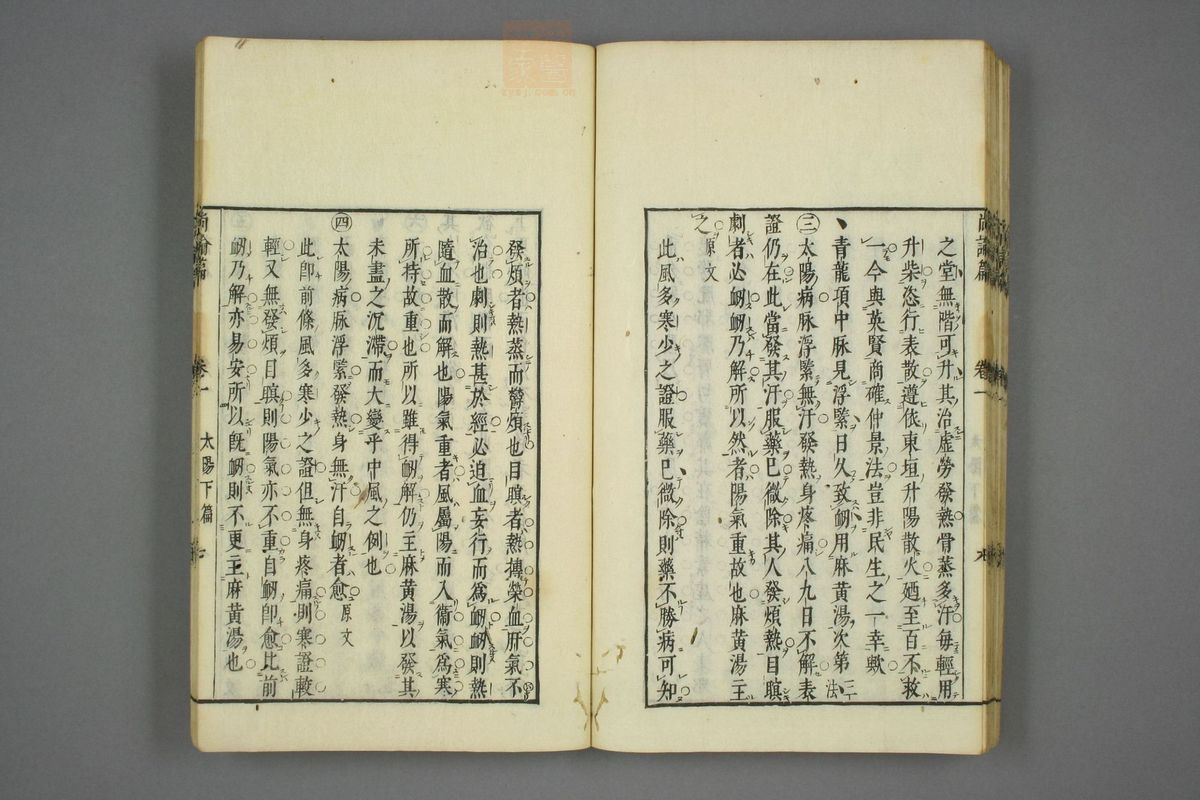 之堂無階可升其治虛勞發熱骨蒸多汗每輕用
升柴恣行表散遵依東垣升陽散火廼至百不救
一今與英賢商確仲景法豈非民生之一幸歟
青龍項中脉見浮緊日久致衂用麻黃湯次第二法
㊂太陽病脉浮緊無汗發熱身疼痛八九日不解表
證仍在此當發其汗服藥已微除其人發煩熱目瞑
劇者必衂衂乃解所以然者陽氣重故也麻黃湯主
之原文
此風多寒少之證服藥已微除則藥不勝病可知
發煩者熱蒸而鬱煩也目瞑者熱摶榮血肝氣不
治也劇則熱甚於經必迫血妄行而為衂衂則熱
隨血散而解也陽氣重者風屬陽而入衞氣為寒
所持故重也所以雖得衂解仍主麻黃湯以發其
未盡之沉滯而大變乎中風之例也
㊃太陽病脉浮緊發熱身無汗自衂者愈原文
此卽前條風多寒少之證但無身疼痛則寒證較
輕又無發煩目瞑則陽氣亦不重自衂卽愈比前
衂乃解亦易安所以旣衂則不更主麻黃湯也
尚論篇
卷一
太陽下篇
七
尚論篇
卷一
zysj.com.cn